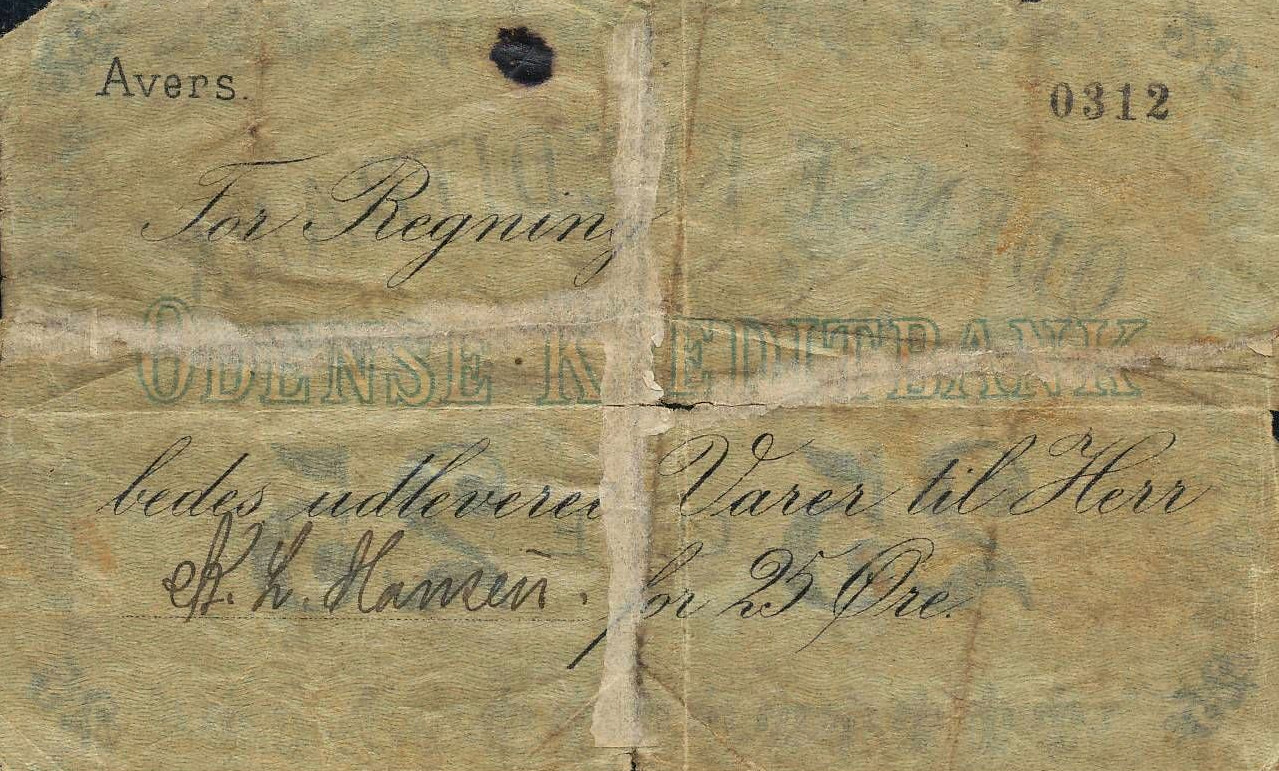 Avers.
0312
For Regning
ODENSE KREDITBANK
bedes udleveret Varer til Herr
N. L. Hansen. for 25 Øre.